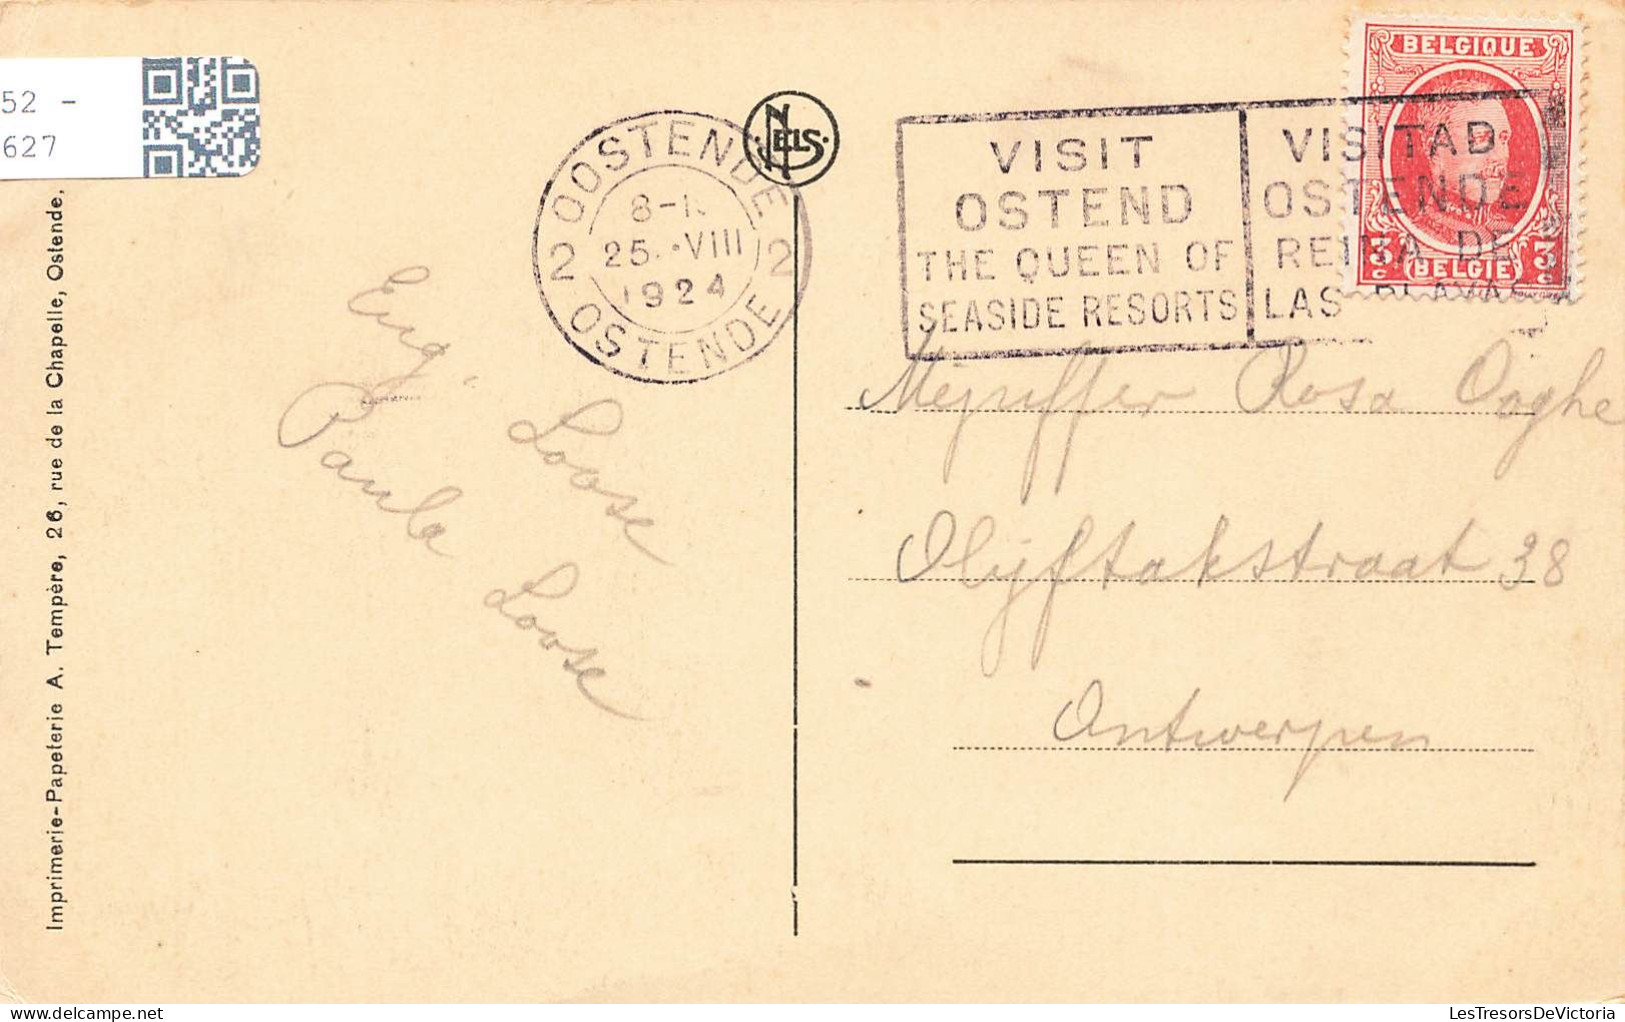 52 -
627
NELS
BELGIQUE
3c BELGIË 3c
OOSTENDE
8-1
25.VIII
1924
2 2
OSTENDE
VISIT
OSTEND
THE QUEEN OF
SEASIDE RESORTS
VISITAD
OSTENDE
REINA DE
LAS PLAYAS
Eug. Loose
Paula Loose
Mejuffer Rosa Ooghe
Olijftakstraat 38
Antwerpen
Imprimerie-Papeterie A. Tempère, 26, rue de la Chapelle, Ostende.
LesTresorsDeVictoria